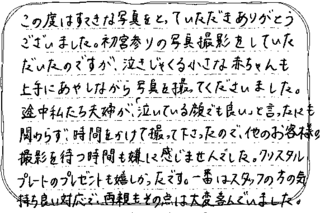 この度はすてきな写真をとっていただきありがとう
ございました。初宮参りの写真撮影をしていた
だいたのですが、泣きじゃくる小さな赤ちゃんも
上手にあやしながら写真を撮ってくださいました。
途中私たち夫婦が、「泣いている顔でも良い」と言ったにも
関わらず、時間をかけて撮って下さったので、他のお客様の
撮影を待つ時間も嫌に感じませんでした。クリスタル
プレートのプレゼントも嬉しかったです。一番はスタッフの方の気
持ち良い対応で、両親もその点は大変喜んでいました。